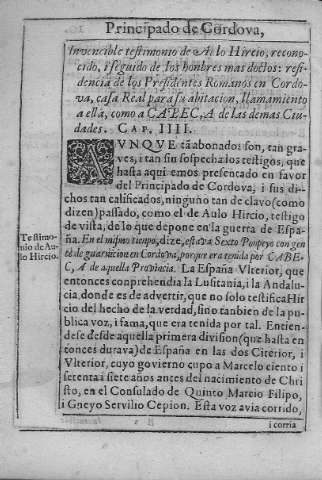 Principado de Cordova,
Invencible testimonio de Aulo Hircio, recono-
cido, i seguido de los honbres mas doctos: resi-
dencia de los Presidentes Romanos en Cordo-
va, casa Real para su abitacion, llamamiento
a ella, como a CABEC,A de las demas Ciu-
dades. CAP. IIII.
AVNQVE tã abonados son, tan gra-
ves, i tan sin sospecha los testigos, que
hasta aqui emos presentado en favor
del Principado de Cordova, i sus di-
chos tan calificados, ninguno tan de clavo (como
dizen) passado, como el de Aulo Hircio, testigo
de vista, de lo que depone en la guerra de Espa-
ña. En el mismo tienpo, dize, estava Sexto Ponpeyo con gen
Testimo-
nio de Au-
lo Hircio.
te de guarnicion en Cordova, porque era tenida por CABE-
C,A de aquella Provincia. La España Vlterior, que
entonces conprehendia la Lusitania, i la Andalu-
cia. donde es de advertir, que no solo testifica Hir
cio del hecho de la verdad, sino tanbien de la pu
blica voz, i fama, que era tenida por tal. Entien-
dese desde aquella primera division (que hasta en
tonces durava) de España en las dos Citerior, i
Vlterior, cuyo govierno cupo a Marcelo ciento i
setenta i siete años antes del nacimiento de Chri
sto, en el Consulado de Quinto Marcio Filipo,
i Gneyo Servilio Cepion. Esta voz avia corrido,
i corria